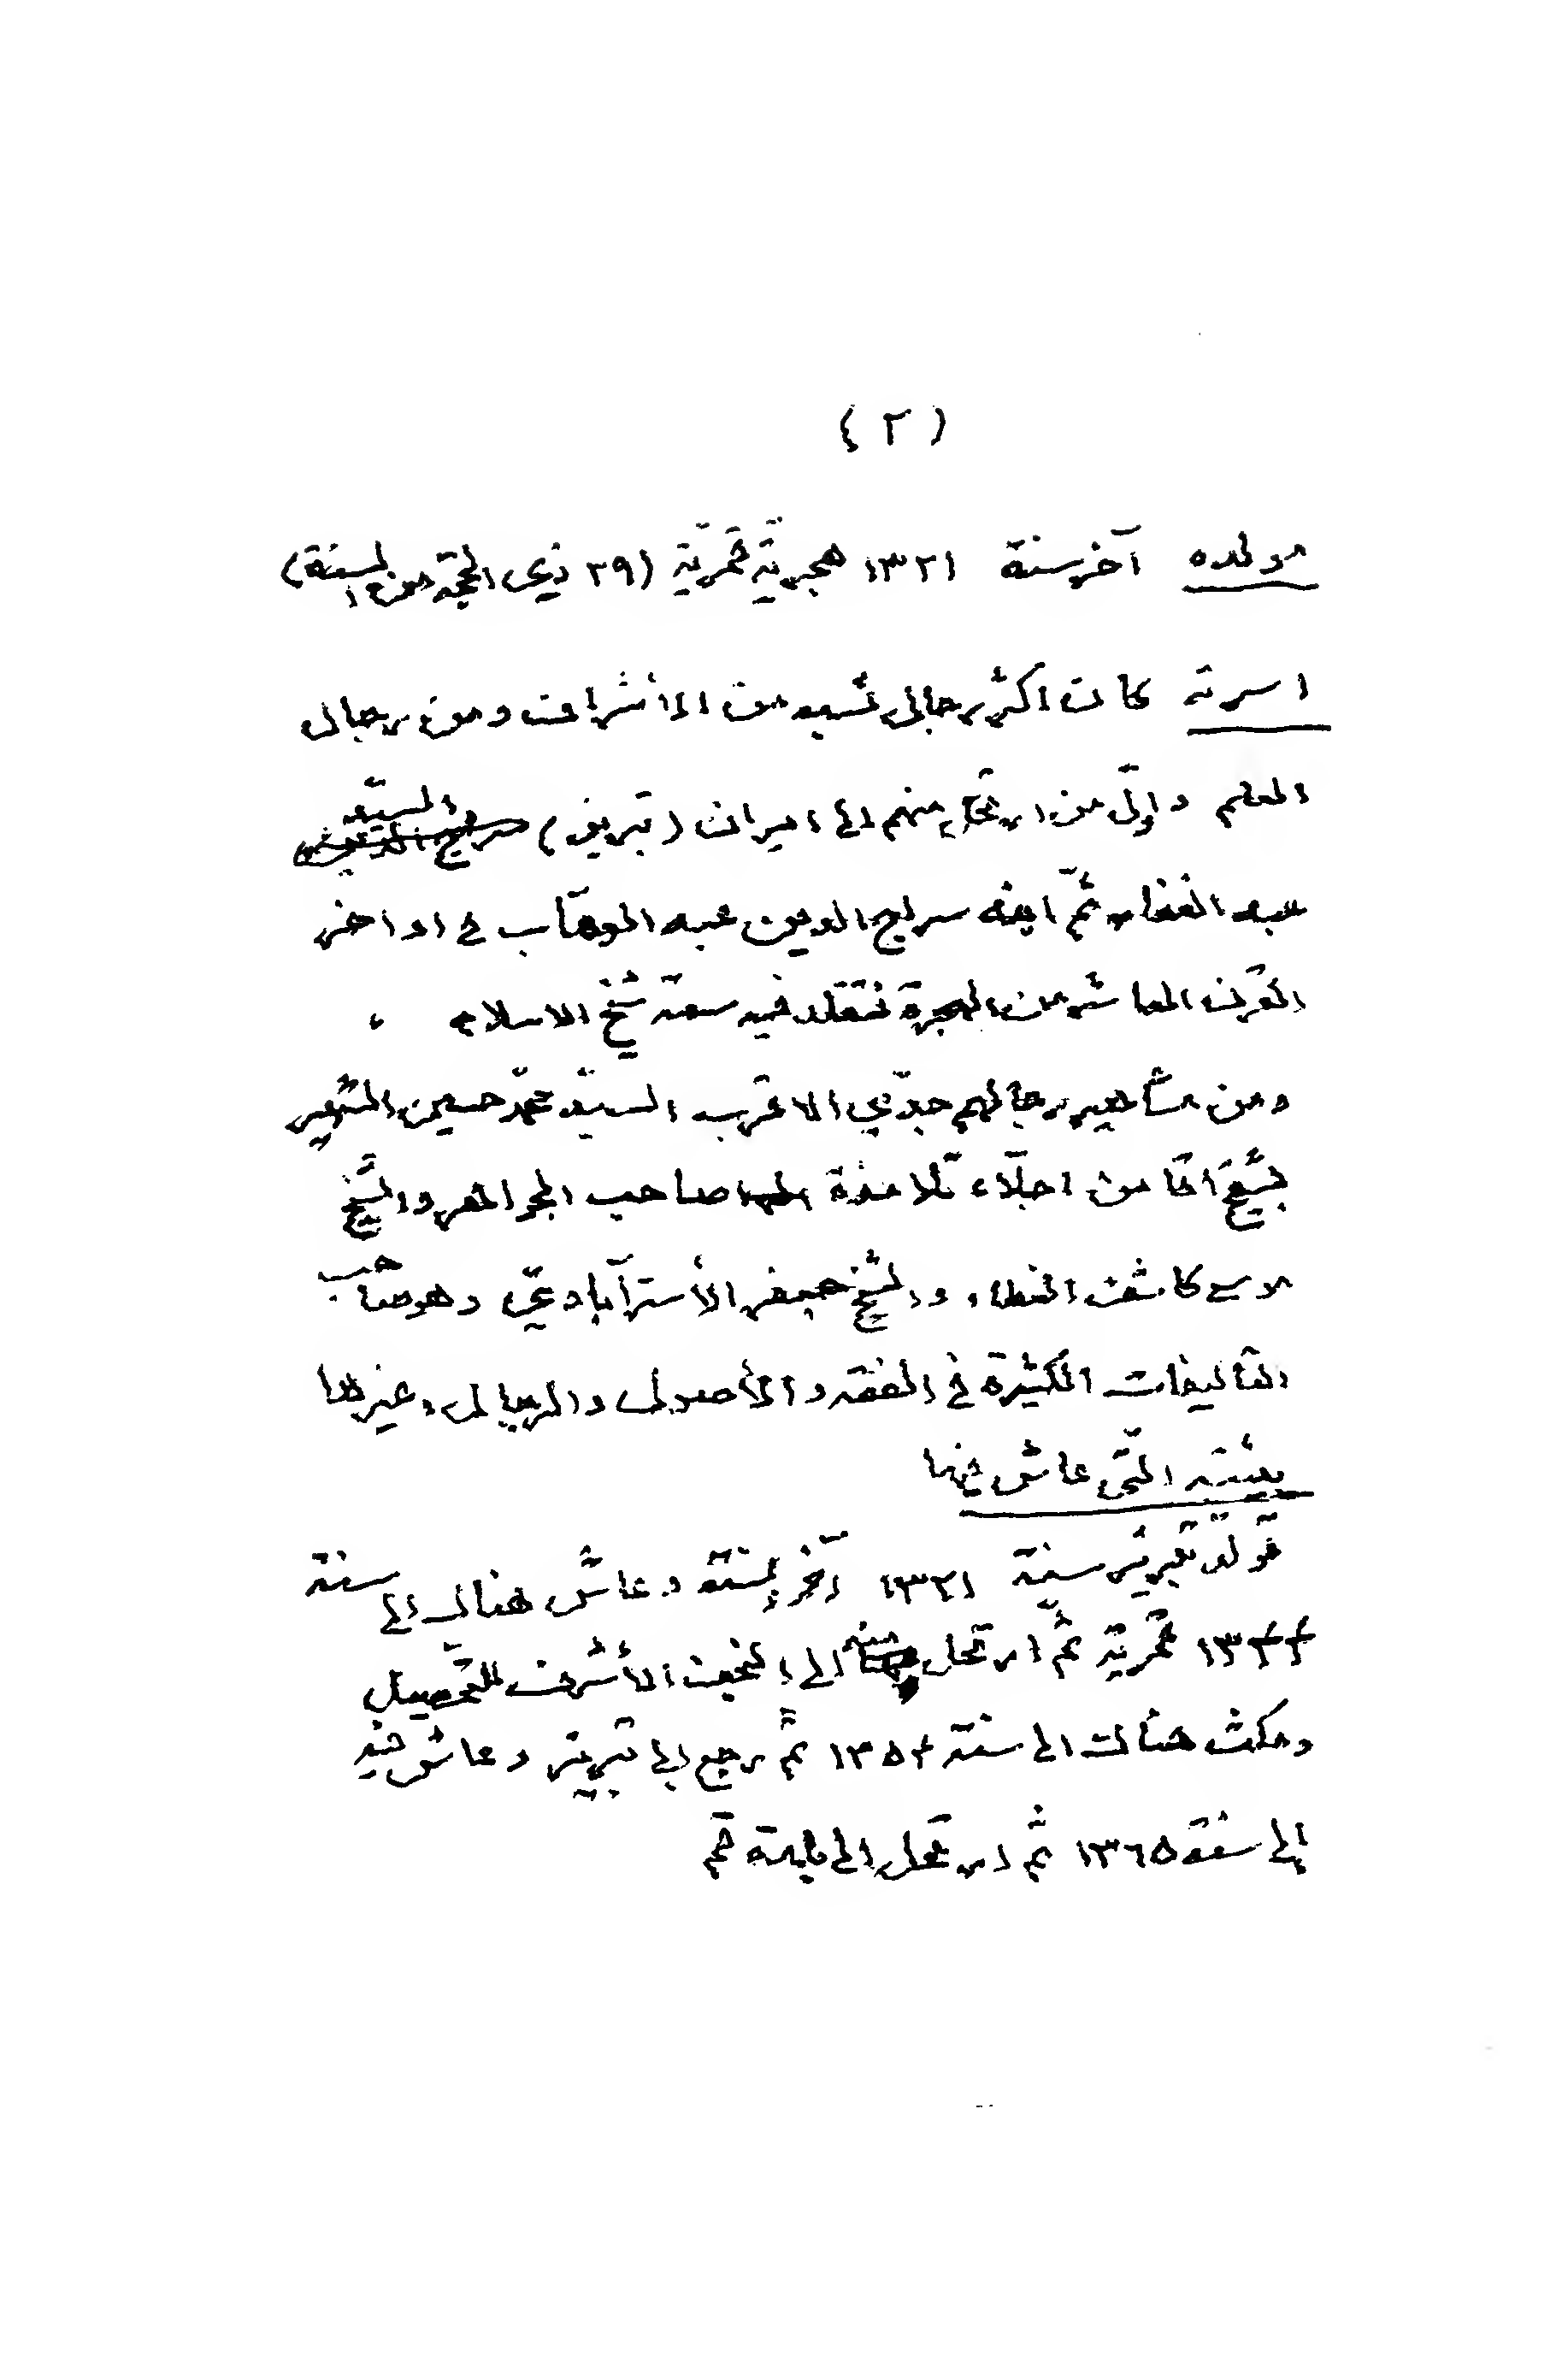 (٢)
مولده آخر سنة ١٣٢١ هجريّة قمريّة (٢٩ ذي الحجّة من السنة)
اسرته كان اكثر رجال نسبه من الأشراف ومن رجال
العلم واوّل من ارتحل منهم الى ايران (تبريز) السيّد
عبد الغفار ثمّ ابنه سراج الدين عبد الوهّاب في اواخر
القرن العاشر من الهجرة فتقلد فيه سمة شيخ الاسلام ،
ومن مشاهير رجالهم جدّي الاقرب السيّد محمّد حسين الشهير
بشيخ آقا من اجلّاء تلامذة صاحب الجواهر والشيخ
موسى كاشف الغطاء والشيخ جعفر الأسترآباديّ وهو صاحب
التأليفات الكثيرة في الفقه والأصول والرجال وغيرها
بيئته الّتي عاش فيها
تولّد بتبريز سنة ١٣٢١ آخر السنة وعاش هناك الى سنة
١٣٤٤ قمريّة ثمّ ارتحل منه الى النجف الأشرف للتحصيل
ومكث هناك الى سنة ١٣٥٤ ثمّ رجع إلى تبريز وعاش فيه
إلى سنة ١٣٦٥ ثم ارتحل الى بلدة قم